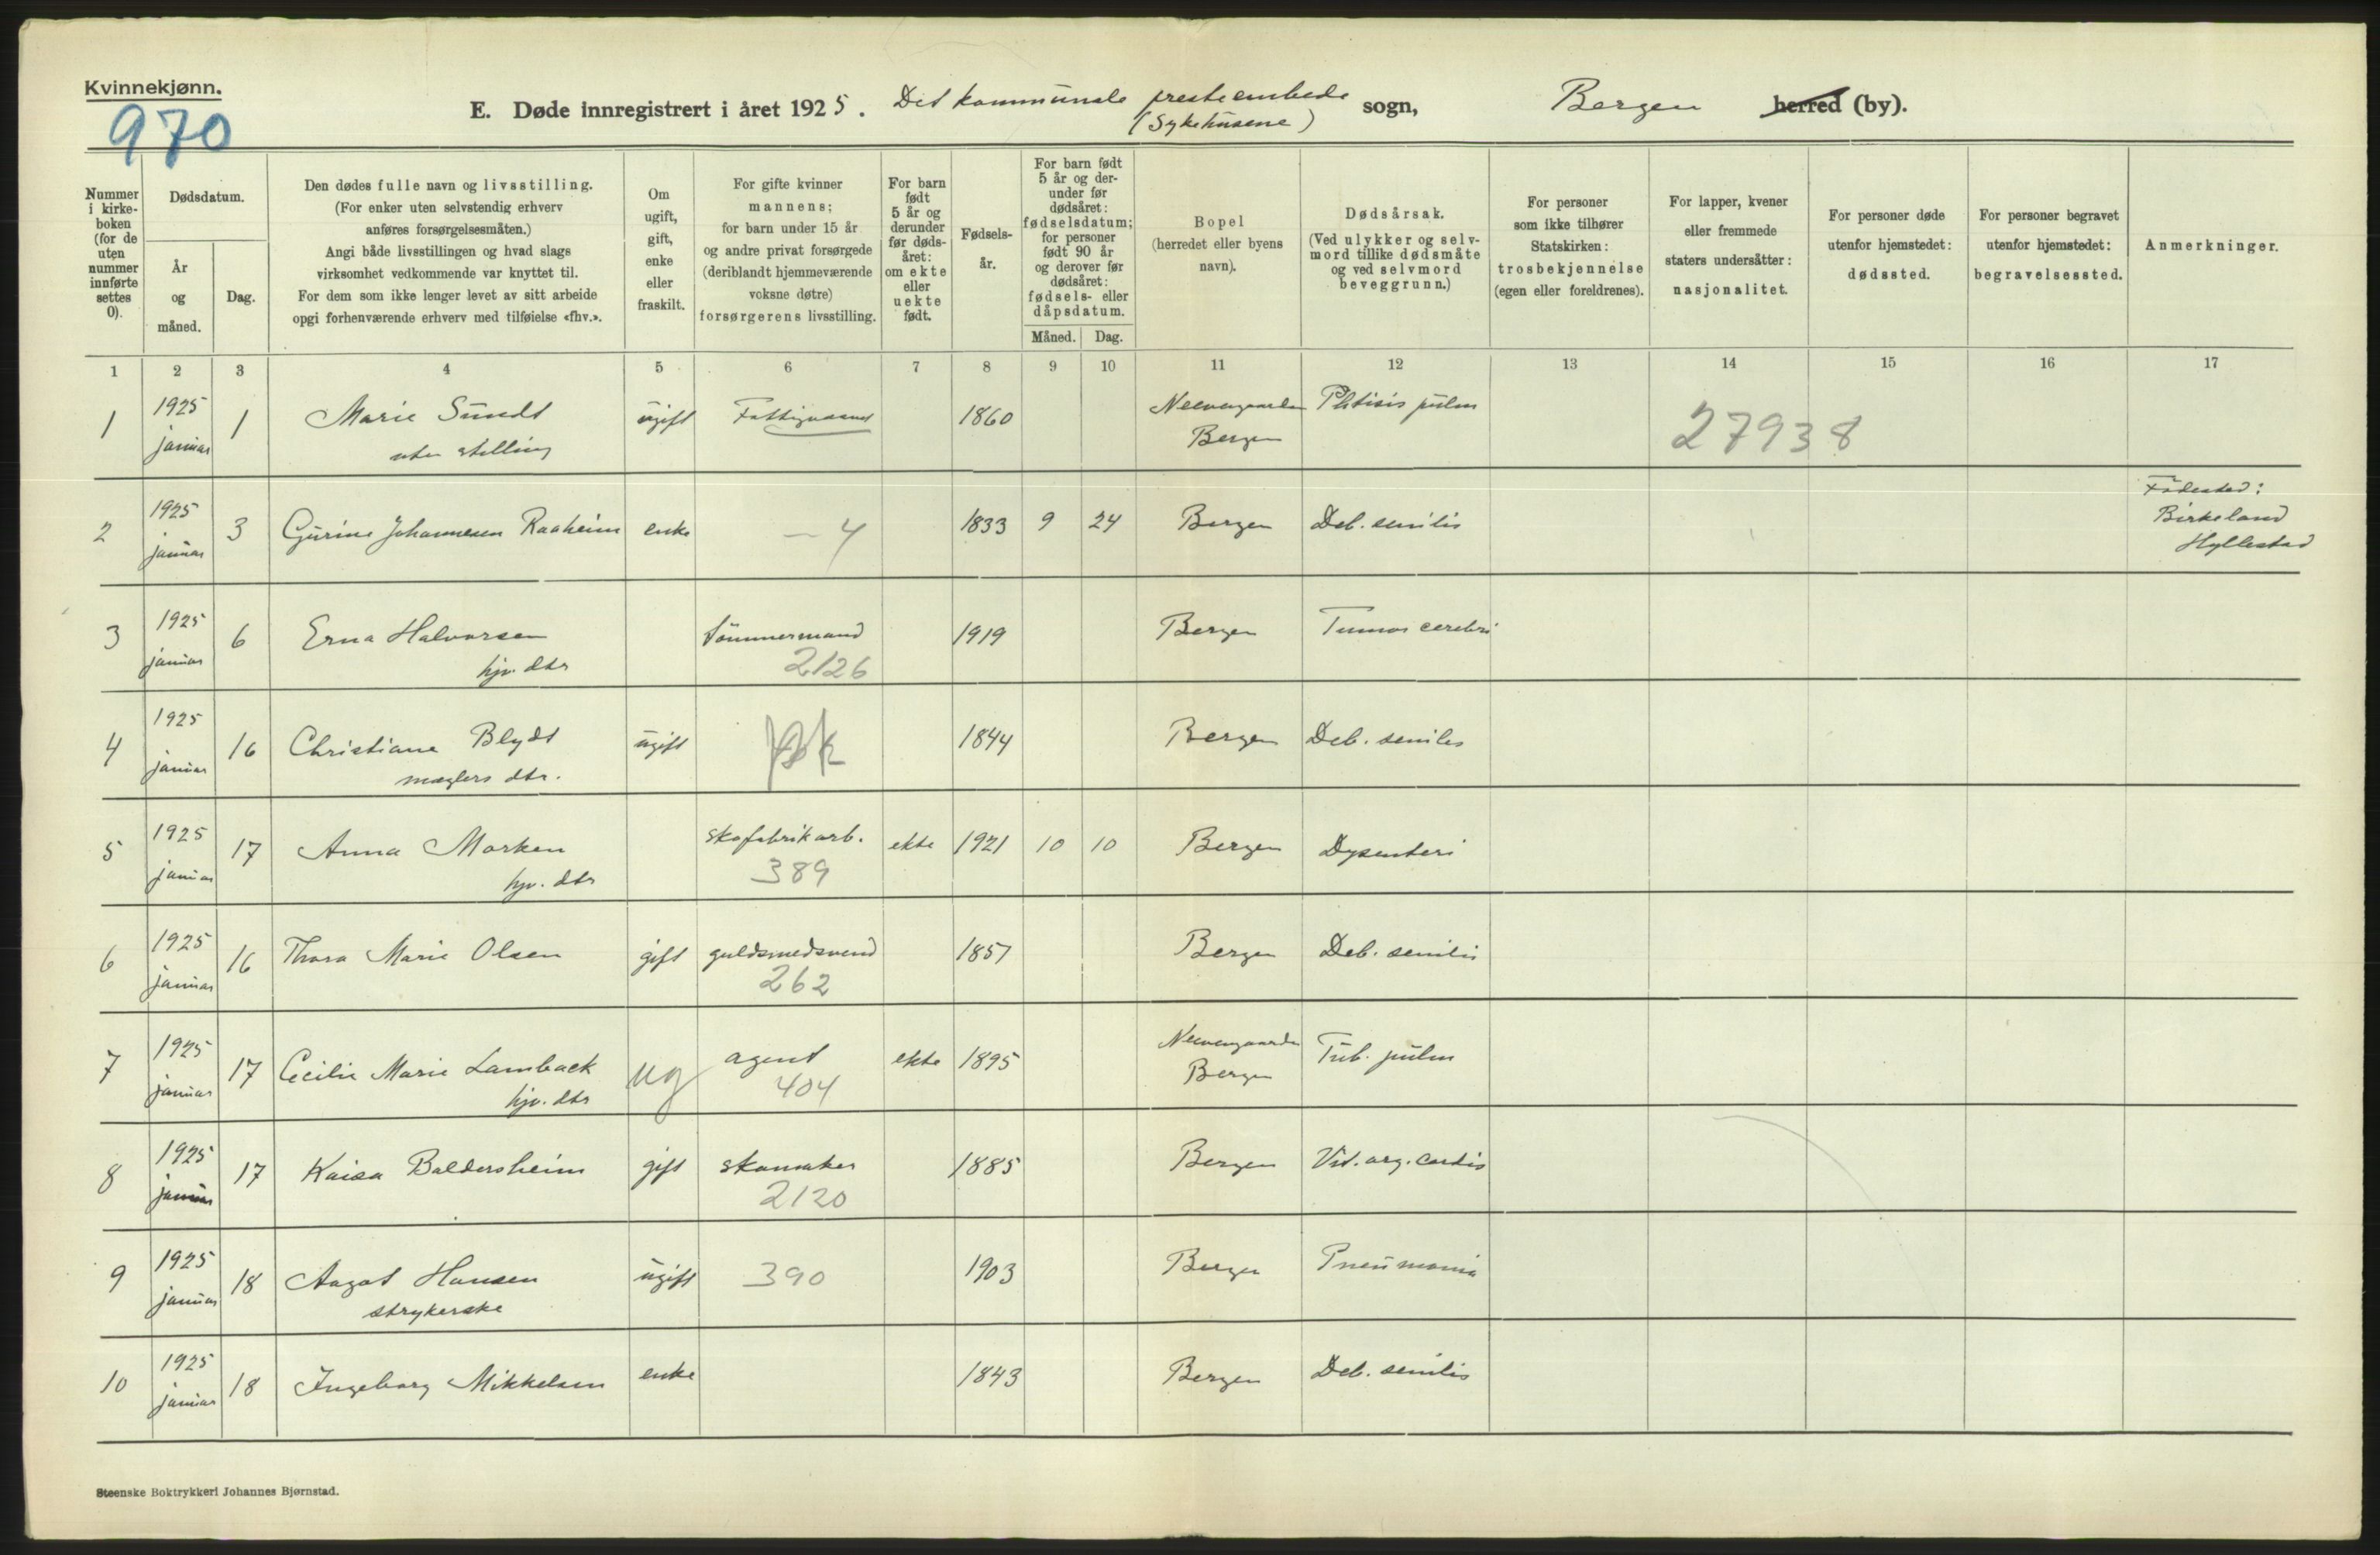 Kvinnekjønn.
970
E. Døde innregistrert i året 1925. Det kommunale presteembede (Sykehusene) sogn, Bergen herred (by).
Nummer i kirkeboken (for de uten nummer innførte settes 0).
Dødsdatum.
År og måned.
Dag.
Den dødes fulle navn og livsstilling.
(For enker uten selvstendig erhverv
anføres forsørgelsesmåten.)
Angi både livsstillingen og hvad slags
virksomhet vedkommende var knyttet til.
For dem som ikke lenger levet av sitt arbeide
opgi forhenværende erhverv med tilføielse «fhv.».
Om ugift, gift, enke eller fraskilt.
For gifte kvinner
mannens;
for barn under 15 år
og andre privat forsørgede
(deriblandt hjemmeværende
voksne døtre)
forsørgerens livsstilling.
For barn født 5 år og derunder før dødsåret: om ekte eller uekte født.
Fødselsår.
For barn født 5 år og derunder før dødsåret: fødselsdatum; for personer født 90 år og derover før dødsåret: fødsels- eller dåpsdatum.
Måned. Dag.
Bopel
(herredet eller byens
navn).
Dødsårsak.
(Ved ulykker og selvmord tillike dødsmåte og ved selvmord beveggrunn.)
For personer
som ikke tilhører
Statskirken:
trosbekjennelse
(egen eller foreldrenes).
For lapper, kvener
eller fremmede
staters undersåtter:
nasjonalitet.
For personer døde
utenfor hjemstedet:
dødssted.
For personer begravet
utenfor hjemstedet:
begravelsessted.
Anmerkninger.
1 2 3 4 5 6 7 8 9 10 11 12 13 14 15 16 17
1 1925 januar 1 Marie Sundt uten stilling ugift Fattigvæsenet 1860 Neevengaarden Bergen Phtisis pulm 27938
2 1925 januar 3 Gurine Johannesen Raaheim enke — 4 1833 9 24 Bergen Deb. senilis Fødested: Birkeland Hyllestad
3 1925 januar 6 Erna Halvorsen hjv. dtr tömmermand 2126 1919 Bergen Tumor cerebri
4 1925 januar 16 Christiane Blydt mæglers dtr. ugift 1844 Bergen Deb. seniles
5 1925 januar 17 Anna Morken hjv. dtr skofabrikarb. 389 ekte 1921 10 10 Bergen Dysenteri
6 1925 januar 16 Thora Marie Olsen gift guldsmedsvend 262 1857 Bergen Deb. senilis
7 1925 januar 17 Cecilie Marie Lamback hjv. dtr ug agent 404 ekte 1895 Neevengaarden Bergen Tub. pulm
8 1925 januar 17 Kaisa Baldersheim gift skomaker 2120 1885 Bergen Vit. org. cordis
9 1925 januar 18 Aagot Hansen strykerske ugift 390 1903 Bergen Pneumonia
10 1925 januar 18 Ingeborg Mikkelsen enke 1843 Bergen Deb. senilis
Steenske Boktrykkeri Johannes Bjørnstad.